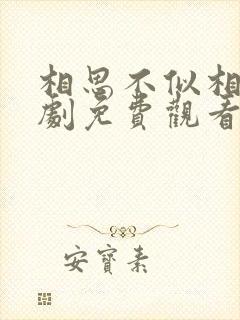 相思不似相
劇免費觀看
安寶素